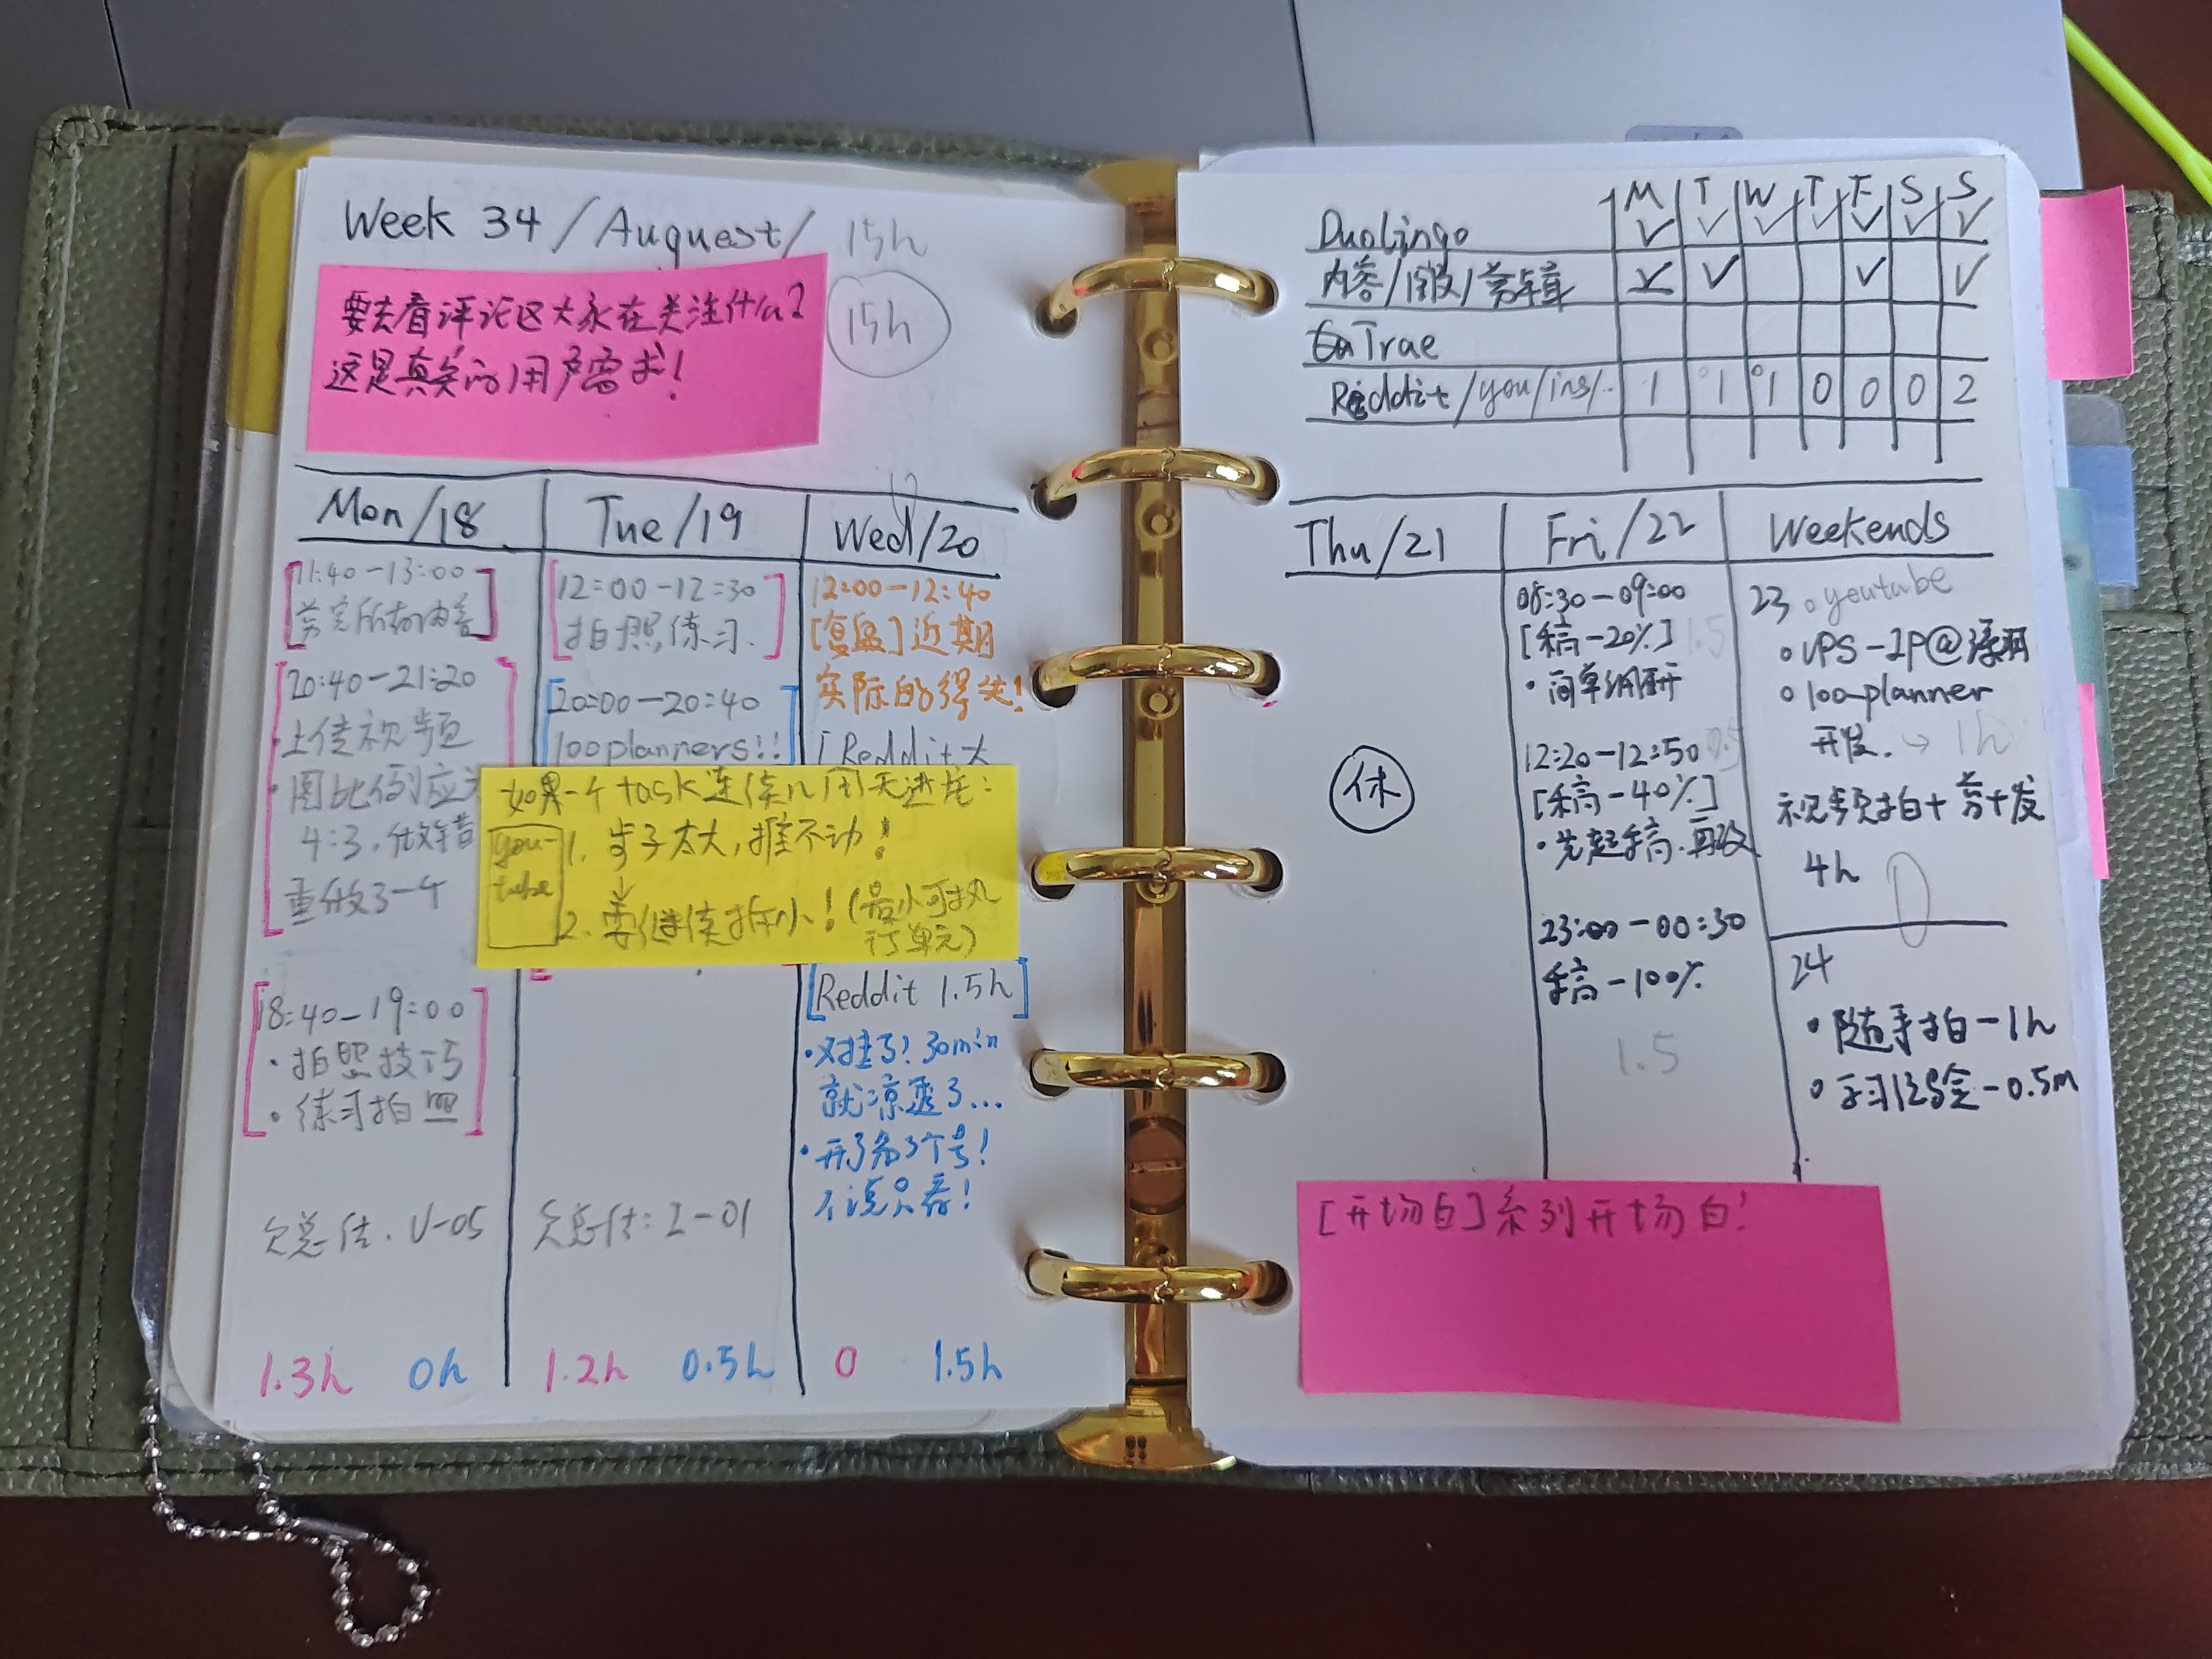 Week 34 / Auguest / 15h
15h
要去看评论区大家在关注什么?
这是真实的用户需求!
Mon/18
11:40-13:00
剪完所有内容
20:40-21:20
·上传视频
·图比例应为
4:3,做错
重做3-4
18:40-19:00
·拍照技巧
·练习拍照
欠总结. V-05
1.3h 0h
Tue/19
12:00-12:30
拍照练习.
20:00-20:40
100planners!!
欠总结: I-01
1.2h 0.5h
Wed/20
12:00-12:40
[复盘]近期
实际的得失!
[Reddit大
如果一个task连续几周无进度:
you-
tube
1. 步子太大,推不动!
↓
2. 要继续拆小!(最小可执
行单元)
[Reddit 1.5h]
·又挂了! 30min
就凉透了...
·再多3个号!
不说只看!
0 1.5h
M T W T F S S
Duolingo ✓ ✓ ✓ ✓ ✓ ✓ ✓
内容/ /剪辑 ✓ ✓ ✓ ✓
Trae
Reddit/you/ins/.. 1 1 1 0 0 0 2
Thu/21
休
Fri/22
08:30-09:00
[稿-20%] 1.5
·简单调研
12:20-12:50 0.5
[稿-40%]
·先起稿.再改
23:00-00:30
稿-100%
1.5
Weekends
23 youtube
VPS-IP@
100planner
开发. → 1h
视频拍+剪+发
4h
24
·随手拍-1h
-0.5m
[开场白]系列开场白!